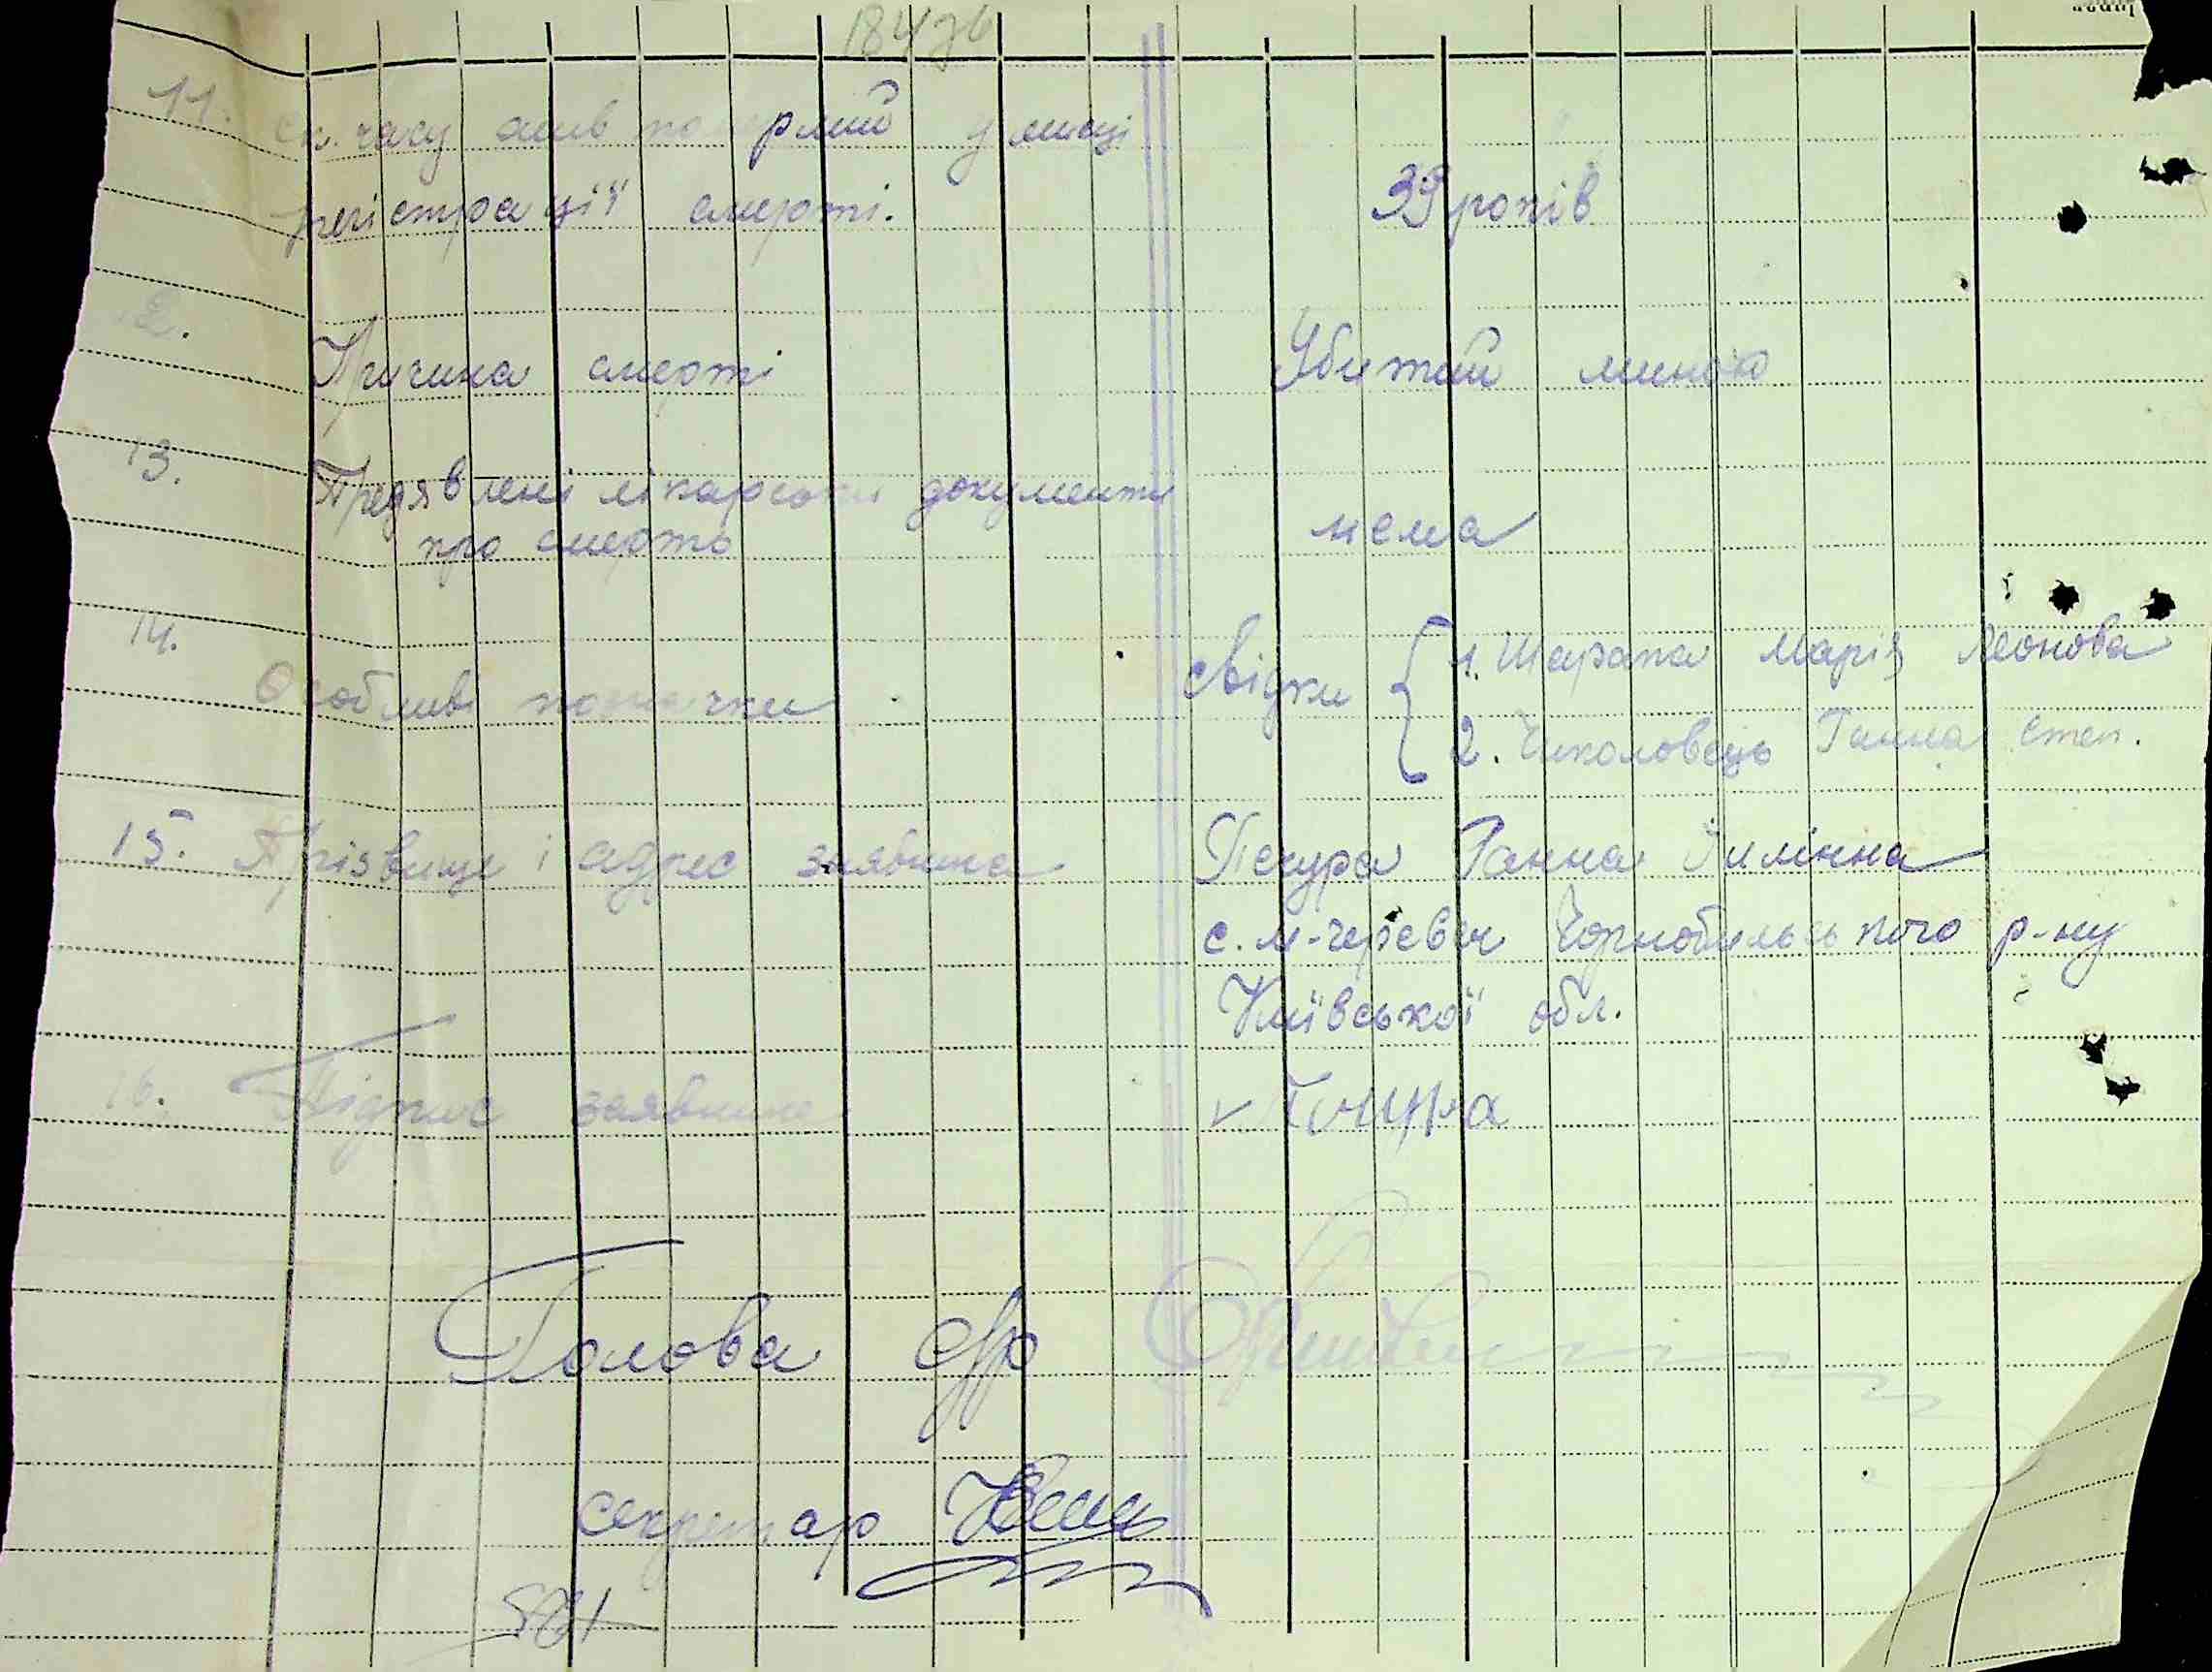 184зв
11. ск. часу жив померлий у місці
регістрації смерті. 39 років
2. Причина смерті Убитий миною
13. Предявлені лікарські документи
про смерть нема
14. Особливі помічки свідки { 1. Шарапа Марія Леонова
2. Чиколовець Ганна Степ.
15. Прізвище і адрес заявника Печура Ганна
с. М-Черевач Чорнобильського р-ну
Київської обл.
16. Підпис заявника v Печура
Голова с/р
Секретар